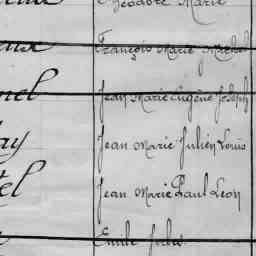 Théodore Marie
aux François Marie Michel
nel Jean Marie Eugène Joseph
ay Jean Marie Julien Louis
tel Jean Marie Paul Léon
Emile Jules